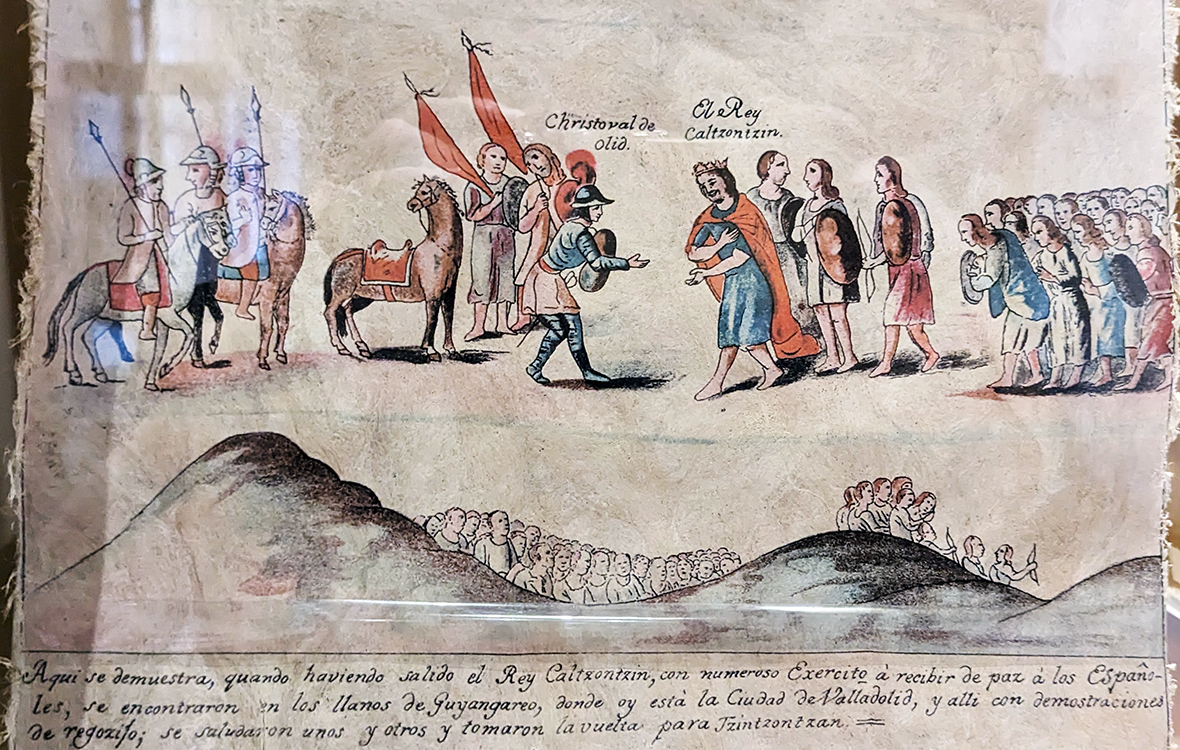 Christoval de
Olid.
El Rey
Caltzontzin.
Aqui se demuestra, quando haviendo salido el Rey Caltzontzin, con numeroso Exercito à recibir de paz à los Españo-
les, se encontraron en los llanos de Guyangareo, donde oy está la Ciudad de Valladolid, y alli con demostraciones
de regozijo; se saludaron unos y otros y tomaron la vuelta para Tzintzontzan.